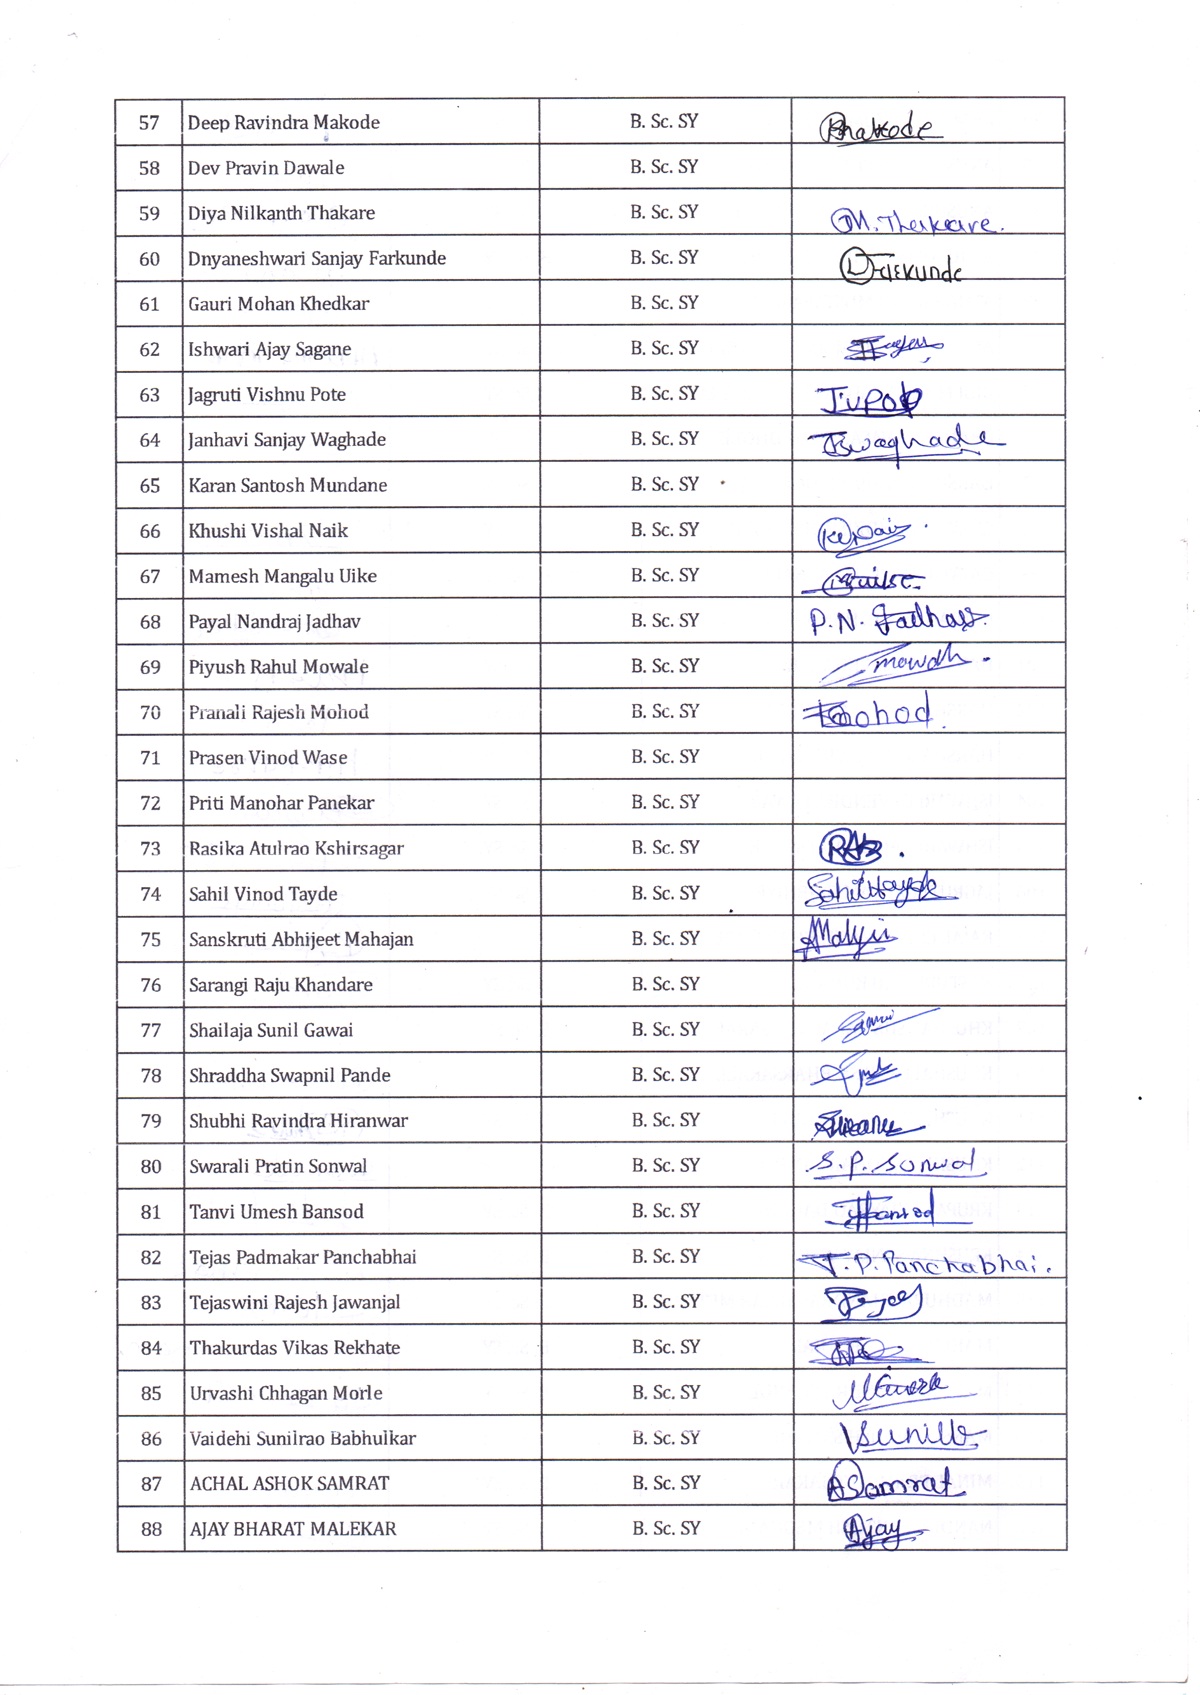 57 Deep Ravindra Makode B. Sc. SY Makode
58 Dev Pravin Dawale B. Sc. SY
59 Diya Nilkanth Thakare B. Sc. SY N. Thakare.
60 Dnyaneshwari Sanjay Farkunde B. Sc. SY Farkunde
61 Gauri Mohan Khedkar B. Sc. SY
62 Ishwari Ajay Sagane B. Sc. SY
63 Jagruti Vishnu Pote B. Sc. SY
64 Janhavi Sanjay Waghade B. Sc. SY Waghade
65 Karan Santosh Mundane B. Sc. SY
66 Khushi Vishal Naik B. Sc. SY
67 Mamesh Mangalu Uike B. Sc. SY
68 Payal Nandraj Jadhav B. Sc. SY P. N. Jadhav
69 Piyush Rahul Mowale B. Sc. SY
70 Pranali Rajesh Mohod B. Sc. SY
71 Prasen Vinod Wase B. Sc. SY
72 Priti Manohar Panekar B. Sc. SY
73 Rasika Atulrao Kshirsagar B. Sc. SY
74 Sahil Vinod Tayde B. Sc. SY
75 Sanskruti Abhijeet Mahajan B. Sc. SY
76 Sarangi Raju Khandare B. Sc. SY
77 Shailaja Sunil Gawai B. Sc. SY
78 Shraddha Swapnil Pande B. Sc. SY
79 Shubhi Ravindra Hiranwar B. Sc. SY
80 Swarali Pratin Sonwal B. Sc. SY S. P. Sonwal
81 Tanvi Umesh Bansod B. Sc. SY
82 Tejas Padmakar Panchabhai B. Sc. SY T. P. Panchabhai.
83 Tejaswini Rajesh Jawanjal B. Sc. SY
84 Thakurdas Vikas Rekhate B. Sc. SY
85 Urvashi Chhagan Morle B. Sc. SY
86 Vaidehi Sunilrao Babhulkar B. Sc. SY
87 ACHAL ASHOK SAMRAT B. Sc. SY ASamrat
88 AJAY BHARAT MALEKAR B. Sc. SY Ajay